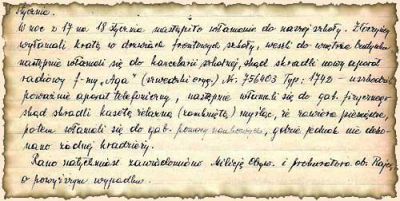 Stycznia.
W noc z 17 na 18 stycznia nastąpiło włamanie do naszej szkoły. Złoczyńcy
wyłamali kratę w drzwiach frontowych szkoły, weszli do wnętrza budynku
następnie włamali się do kancelarii szkolnej, skąd skradli nowy aparat
radiowy f-my "Aga" (szwedzki oryg.) Nr. 756403 Typ: 1742 - uszkodzili
poważnie aparat telefoniczny, następnie włamali się do gab. fizycznego
skąd skradli kasetę żelazną (zamkniętą) myśląc, że zawiera pieniądze,
potem włamali się do gab. pomocy naukowych, gdzie jednak nie doko-
nano żadnej kradzieży.
Rano natychmiast zawiadomiono Milicję Obyw. i prokuratora ob.
o powyższym wypadku.